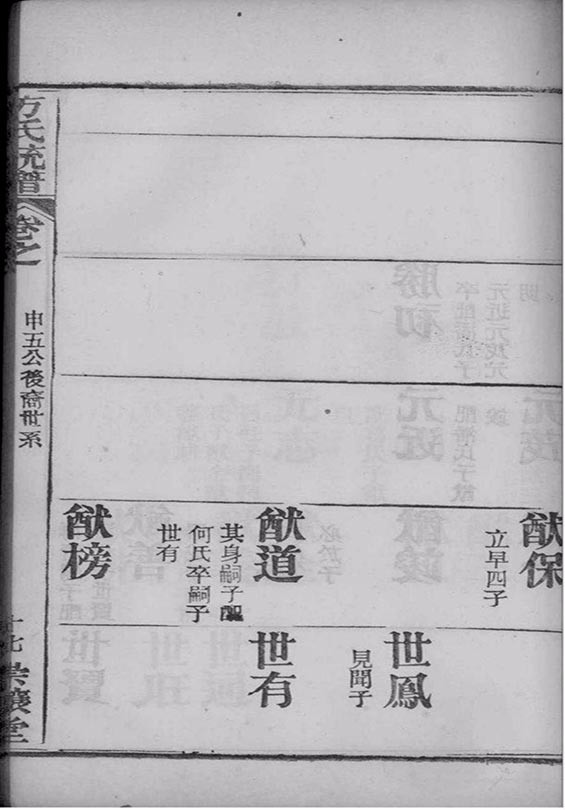 猷保
立早四子
世鳳
見聞子
猷道
其身嗣子配
何氏卒嗣子
世有
世有
猷榜
方氏統譜
卷之
申五公後裔世系
十七